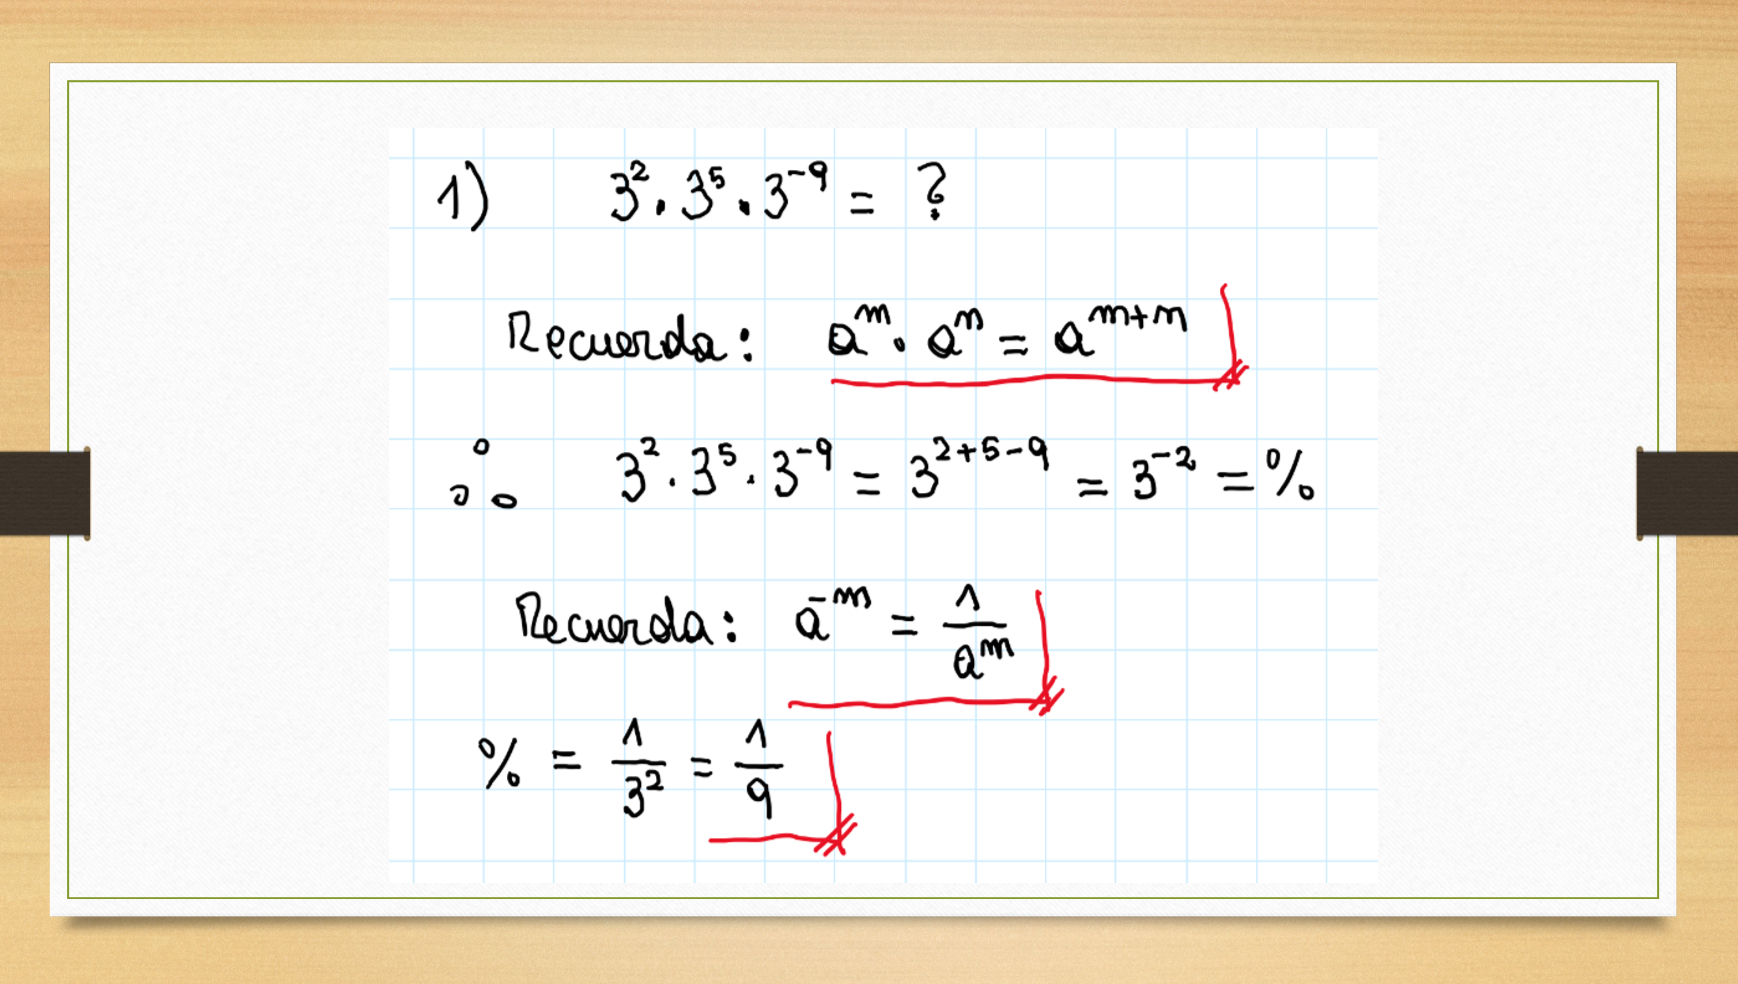 1) 3² · 3⁵ · 3⁻⁹ = ?
Recuerda: aᵐ · aⁿ = aᵐ⁺ⁿ
∴ 3² · 3⁵ · 3⁻⁹ = 3²⁺⁵⁻⁹ = 3⁻² = %
Recuerda: a⁻ᵐ = 1/aᵐ
% = 1/3² = 1/9